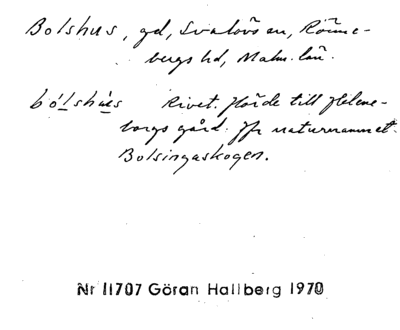 Bolshus, gd, Svalövs sn, Rönne-
bergs hd, Malm. län.
bólshùs Rivet. Hörde till Helene-
borgs gård. Jfr naturnamnet
Bolsingaskogen.
Nr 11707 Göran Hallberg 1970